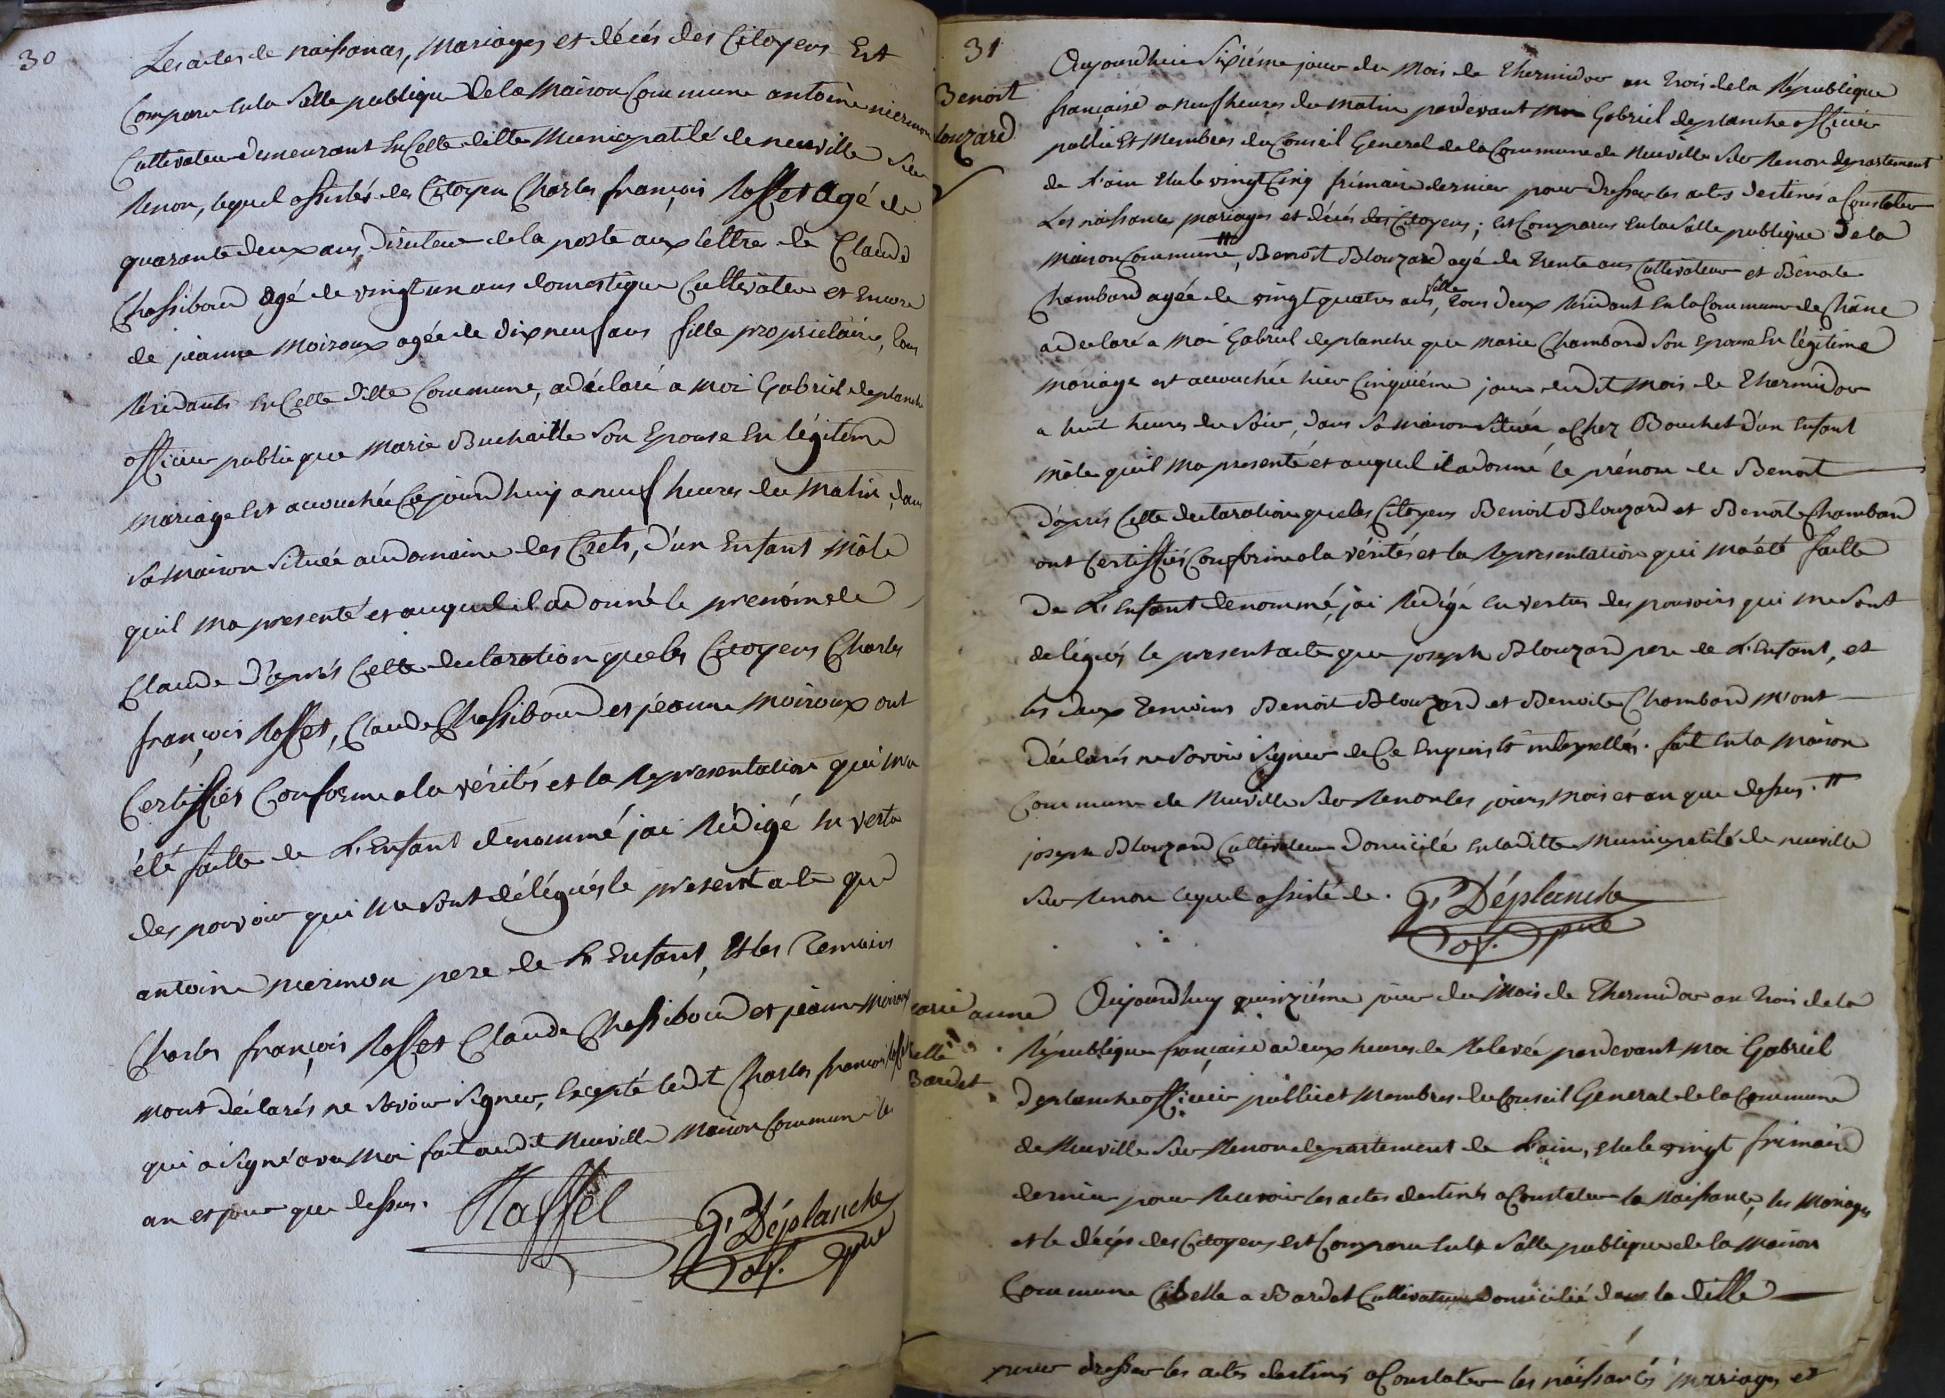 30
Les actes de naissances, Mariages et décès des Citoyens Est
Comparu En la Salle publique De la Maison Commune antoine niermon
Cultivateur demeurant En Cette ditte Municipalité de neuville sur
Renon, lequel assistés des Citoyen Charles françois Rosset Agé de
quarante deux ans, Directeur de la poste aux lettres de Claude
Chassiboud agé de vingt un ans domestique Cultivateur et Encore
de jeanne Moiroux agée de dix neuf ans fille proprietaire, tous
Résidants En Cette ditte Commune, a déclaré a moi Gabriel deplanche
officier public que Marie Buchaille Son Epouse En légitime
mariage Est accouchée Ce jourd'huy a neuf heures du Matin, dans
Sa maison Située au domaine des Crets, d'un Enfant Mâle
quil ma presenté et auquel il a donné le prenom de
Claude d'après Cette declaration que les Citoyens Charles
françois Rosset, Claude Chassiboud et jeanne Moiroux ont
Certiffiés Conforme a la vérités et la Representation qui m'a
été faitte de L'Enfant denommé jai Rédigé En vertu
des pouvoir qui me Sont délégués le present acte que
antoine niermon pere de L'Enfant, Et les Temoins
Charles françois Rosset Claude Chassiboud et jeanne Moiroux
mont déclarés ne Savoir Signer, Excepté ledit Charles françois Rosset
qui a Signé avec Moi fait audit Neuville Maison Commune les
an et jour que dessus.
Raffet
G. Déplanche
of. pue
31
Benoit
blouzard
Aujourdhui Sixiéme jour du Mois de Thermidor an trois de la République
française a neuf heures du matin pardevant Moi Gabriel deplanche officier
public Et Membres du Conseil General de la Commune de Neuville Sur Renon departement
de L'ain Elu le vingt Cinq frimaire dernier pour dresser les actes destinés a Constater
Les naissance mariages et décès des Citoyens; Est Comparus En la Salle publique De la
Maison Commune, # Benoit Blouzard agé de Trente ans Cultivateur et Benoite
Chambard agée de vingt quatre ans, fille, tous deux Résidant En la Commune de Châne
a declaré a Moi Gabriel deplanche que Marie Chambard Son Epouse En légitime
mariage est accouchée hier Cinquiéme jour du dit mois de Thermidor
a huit heures du Soir, dans Sa maison Située a Chez Bouchet d'un Enfant
mâle quil Ma presenté et auquel il a donné le prénom de Benoit
d'aprés Cette declaration que les Citoyens Benoit Blouzard et Benoite Chambard
ont Certiffiés Conforme a la vérités et la Representation qui ma été faitte
de L'Enfant denommé, jai Redigé En vertus des pouvoirs qui me Sont
delégués le present acte que joseph Blouzard pere de L'Enfant, et
les deux Temoins Benoit Blouzard et Benoite Chambard m'ont
Déclarés ne Savoir Signer de Ce Enquis et interpellés. fait En la Maison
Commune de Neuville Sur Renon les jours Mois et an que dessus. #
joseph Blouzard Cultivateur Domicilé En la ditte Municipalité de neuville
Sur Renon lequel assisté de.
G. Déplanche
of. pue
marie anne
belle
Bardet
Aujourdhuy quinziéme jour du Mois de Thermidor an trois de la
République française a deux heures de Relevée pardevant Moi Gabriel
deplanche officier public et Membres du Conseil General de la Commune
de Neuville Sur Renon departement de L'ain, Elu le vingt frimaire
dernier pour Recevoir les actes destinés a Constater la Naissance, les Mariages
et le décès des Citoyens est Comparu En la Salle publique de la Maison
Commune Cibelle a Bardet Cultivateur Domicilié dans la ditte
pour dresser les actes destinés a Constater les naissances mariages et